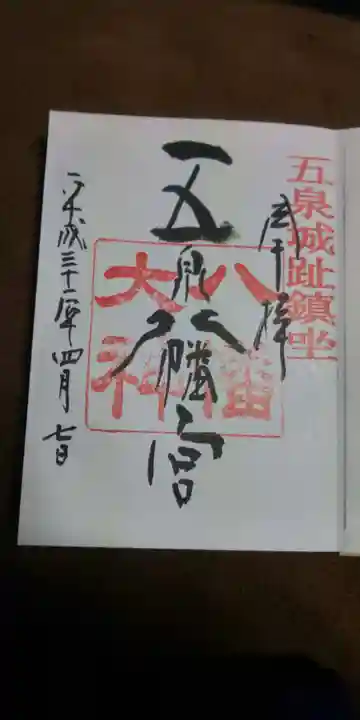 五泉城趾鎮坐
奉拝
五泉八幡宮
八幡
大神
平成三十一年四月七日